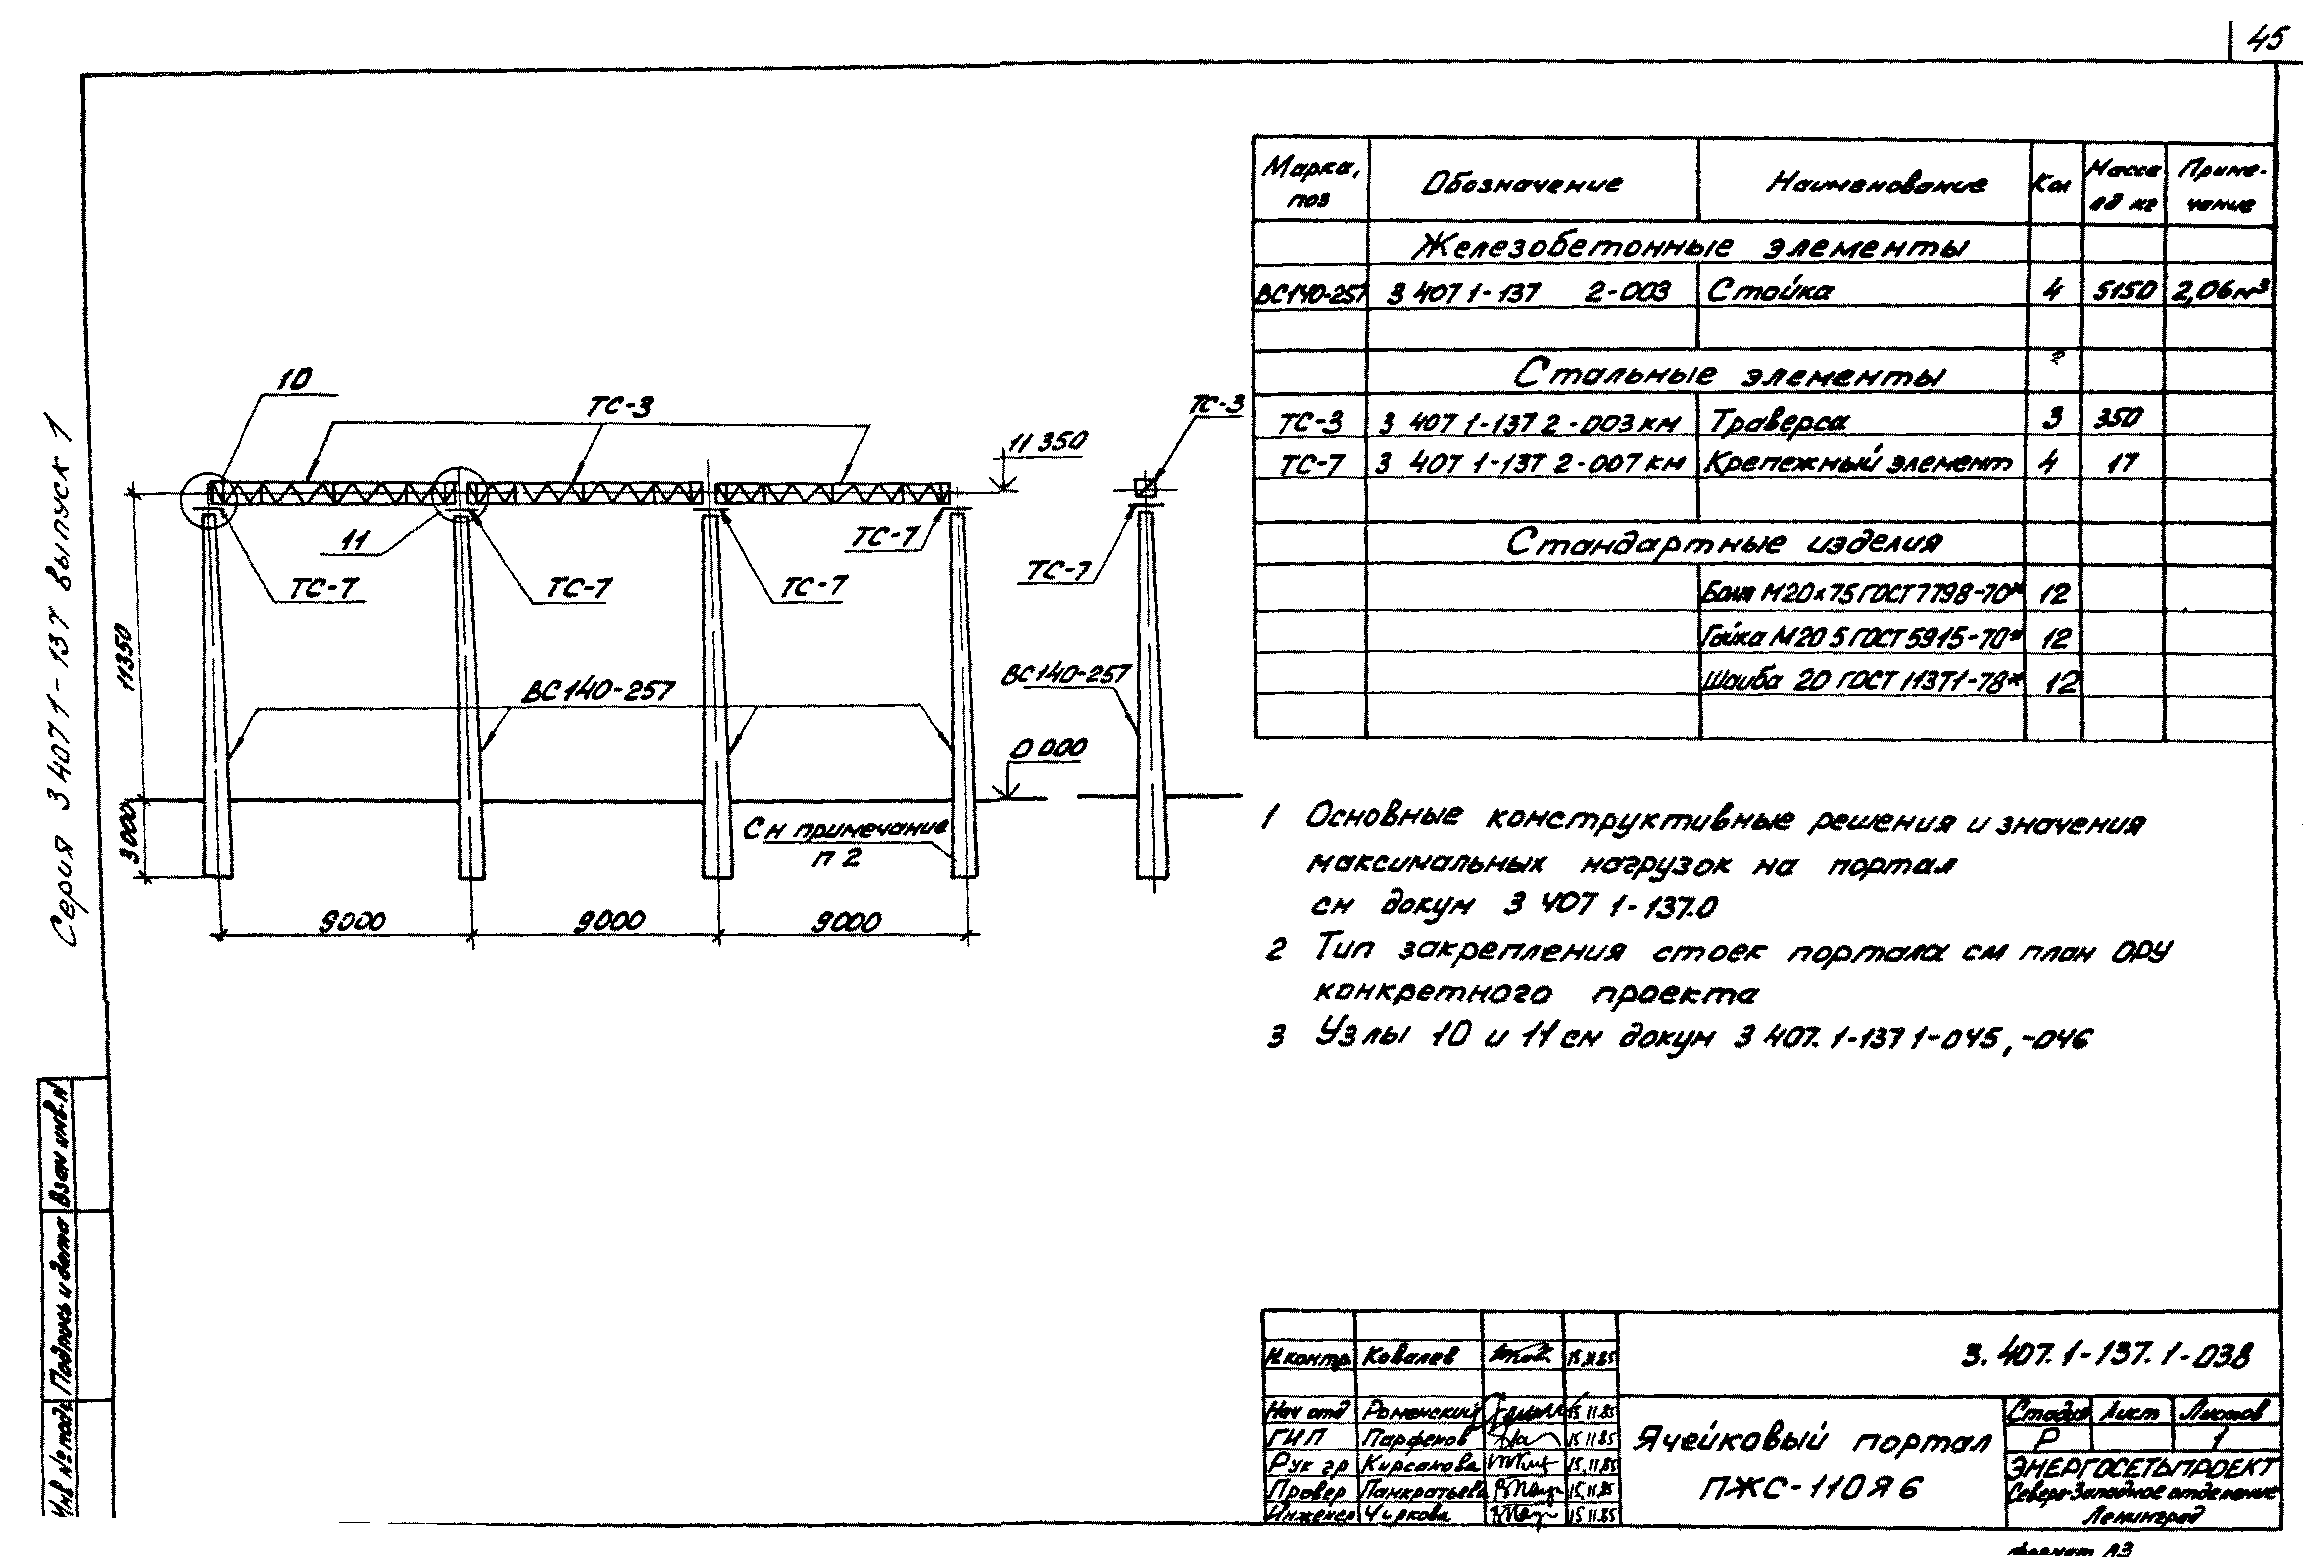 45
Серия 3 407 1-137 выпуск 1
10
ТС-3
11 350
11
ТС-7
ТС-7
ТС-7
ТС-7
11350
ВС140-257
0 000
3000
См примечание
п 2
9000
9000
9000
ТС-3
ТС-7
ВС140-257
Марка, поз | Обозначение | Наименование | Кол | Масса ед кг | Приме-чание
Железобетонные элементы
ВС140-257 | 3 407 1-137 2-003 | Стойка | 4 | 5150 | 2,06 м³
Стальные элементы
ТС-3 | 3 407 1-137 2-003 км | Траверса | 3 | 350
ТС-7 | 3 407 1-137 2-007 км | Крепежный элемент | 4 | 17
Стандартные изделия
Болт М20х75 ГОСТ 7798-70* | 12
Гайка М20 5 ГОСТ 5915-70* | 12
Шайба 20 ГОСТ 11371-78* | 12
1 Основные конструктивные решения и значения
максимальных нагрузок на портал
см докум 3 407 1-137.0
2 Тип закрепления стоек портала см план ОРУ
конкретного проекта
3 Узлы 10 и 11 см докум 3 407. 1-137 1-045, -046
Взам инв. N
Подпись и дата
Инв № подл
Н контр | Ковалев | 15.11.85
Нач отд | Роменский | 15.11.85
ГИП | Парфенов | 15 11 85
Рук гр | Кирсанова | 15.11.85
Провер | Панкратьева | 15.11.85
Инженер | Чиркова | 15 11.85
3. 407. 1-137. 1-038
Ячейковый портал
ПЖС-110Я6
Стадия | Лист | Листов
Р | 1
ЭНЕРГОСЕТЬПРОЕКТ
Северо-Западное отделение
Ленинград
Формат А3